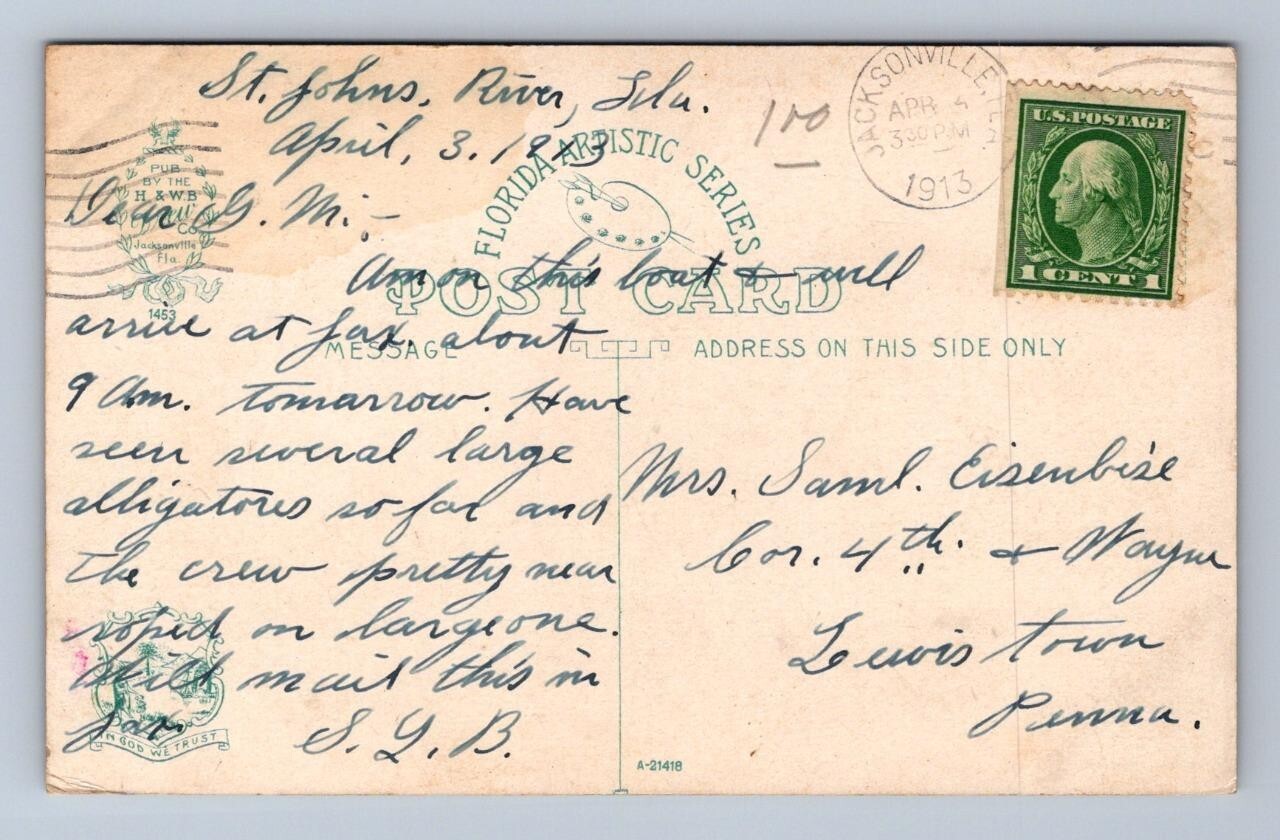 St. Johns, River, Fla.
April, 3. 1913
100
JACKSONVILLE, FLA
APR 4
330 PM
1913
U.S. POSTAGE
1 CENT 1
PUB
BY THE
H & W B
Drew
Co
Jacksonville
Fla.
1453
FLORIDA ARTISTIC SERIES
POST CARD
MESSAGE
ADDRESS ON THIS SIDE ONLY
Dear G. M;-
Am on this boat & will
arrive at Jax. about
9 Am. tomarrow. Have
seen several large
alligatores so far and
the crew pretty near
roped on large one.
Will mail this in
Jax. S. L. B.
IN GOD WE TRUST
Mrs. Saml. Eisenbise
Cor. 4th. & Wayne
Lewis town
Penna.
A-21418